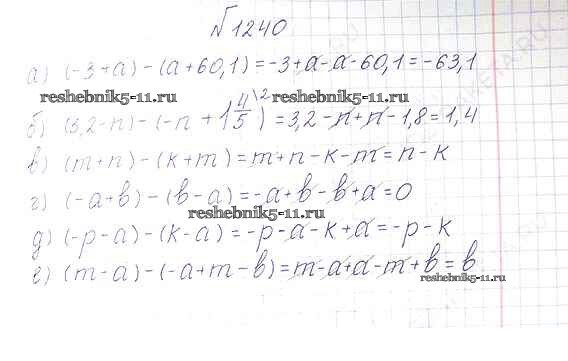 №1240
а) (-3+a) - (a+60,1) = -3+a-a-60,1 = -63,1
reshebnik5-11.ru
б) (3,2-n) - (-n + 1 4/5 \2) = 3,2-n+n-1,8 = 1,4
reshebnik5-11.ru
в) (m+n) - (k+m) = m+n-k-m = n-k
г) (-a+b) - (b-a) = -a+b-b+a = 0
reshebnik5-11.ru
д) (-p-a) - (k-a) = -p-a-k+a = -p-k
е) (m-a) - (-a+m-b) = m-a+a-m+b = b
reshebnik5-11.ru